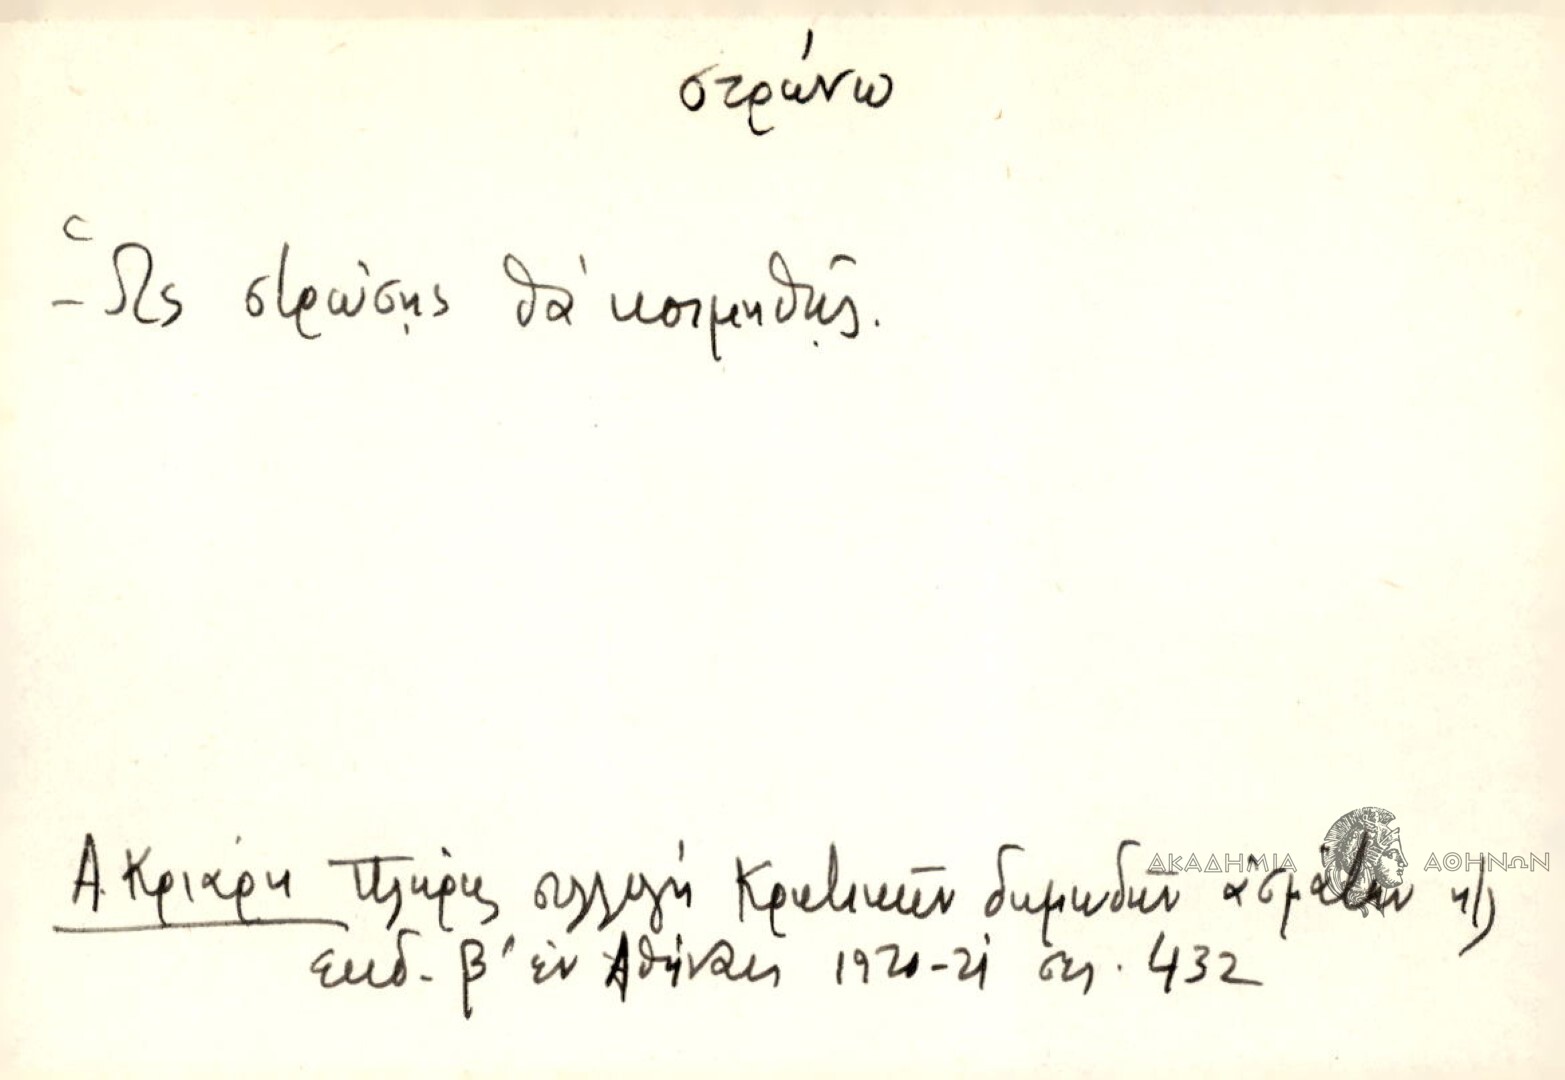 στρώνω
– Ὡς στρώσῃς θὰ κοιμηθῇς.
Α. Κριάρη Πλήρης συλλογή Κρητικῶν δημωδῶν ᾀσμάτων
ΑΚΑΔΗΜΙΑ ΑΘΗΝΩΝ
ἐκδ. β' ἐν Ἀθήναις 1920-21 σελ. 432